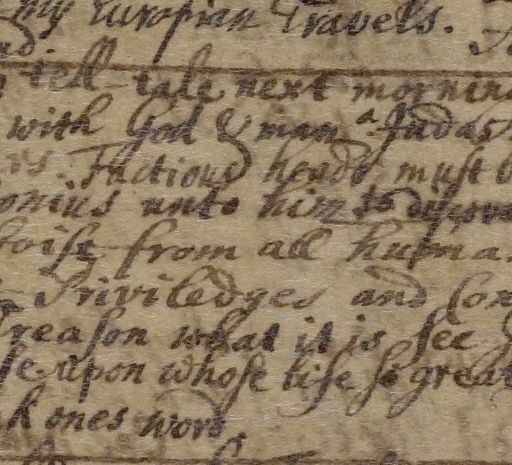 my Europian Travells.
tell tale next morning
with God & man a Judas
Factious heads must
unto him to
from all huma
Priviledges and
Treason what it is see
upon whose life so great
ones word